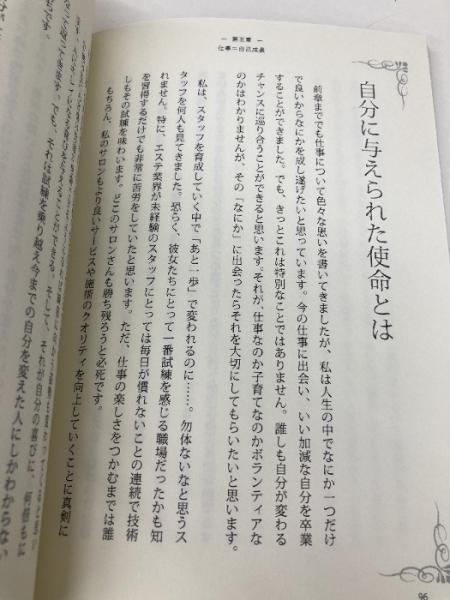 ― 第五章 ―
仕事=自己成長
自分に与えられた使命とは
前章まででも仕事について色々な思いを書いてきましたが、私は人生の中でなにか一つだけ
で良いからなにかを成し遂げたいと思っています。今の仕事に出会い、いい加減な自分を卒業
することができました。でも、きっとこれは特別なことではありません。誰しも自分が変わる
チャンスに巡り合うことができると思います。それが、仕事なのか子育てなのかボランティアな
のかはわかりませんが、その「なにか」に出会ったらそれを大切にしてもらいたいと思います。
私は、スタッフを育成していく中で「あと一歩」で変われるのに……。勿体ないなと思うス
タッフを何人も見てきました。恐らく、彼女たちにとって一番試練を感じる職場だったかも知
れません。特に、エステ業界が未経験のスタッフにとっては毎日が慣れないことの連続で技術
を習得するだけでも非常に苦労をしていたと思います。ただ、仕事の楽しさをつかむまでは誰
しもその試練を味わいます。どこのサロンさんも勝ち残ろうと必死です。
もちろん、私のサロンもより良いサービスや施術のクオリティを向上していくことに真剣に
96
それは試練を乗り越え今までの自分を変えた人にしかわからない